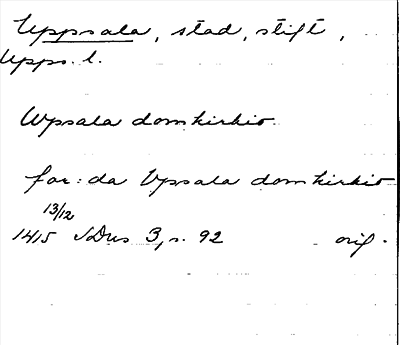 Uppsala, stad, stift,
Upps. l.
Wpsala domkirkio
for: da Vpsala domkirkio
13/12
1415 SDns 3, s. 92 orig.